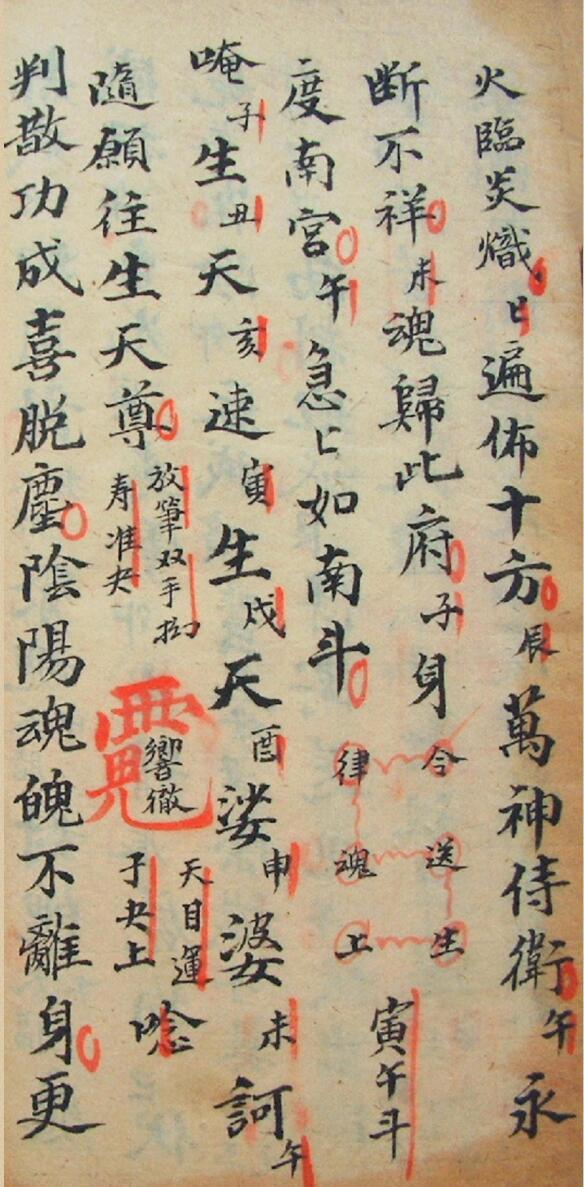 火臨炎熾匕遍佈十方辰萬神侍衛午永
断不祥未魂歸此府子身令送生寅午斗
度南宮午急匕如南斗律魂上
唵子生丑天亥速寅生戌天酉娑申婆未訶午
隨願往生天尊
放筆双手
寿准央
響徹
天目運
子央上
唸
判散功成喜脱塵陰陽魂魄不離身更